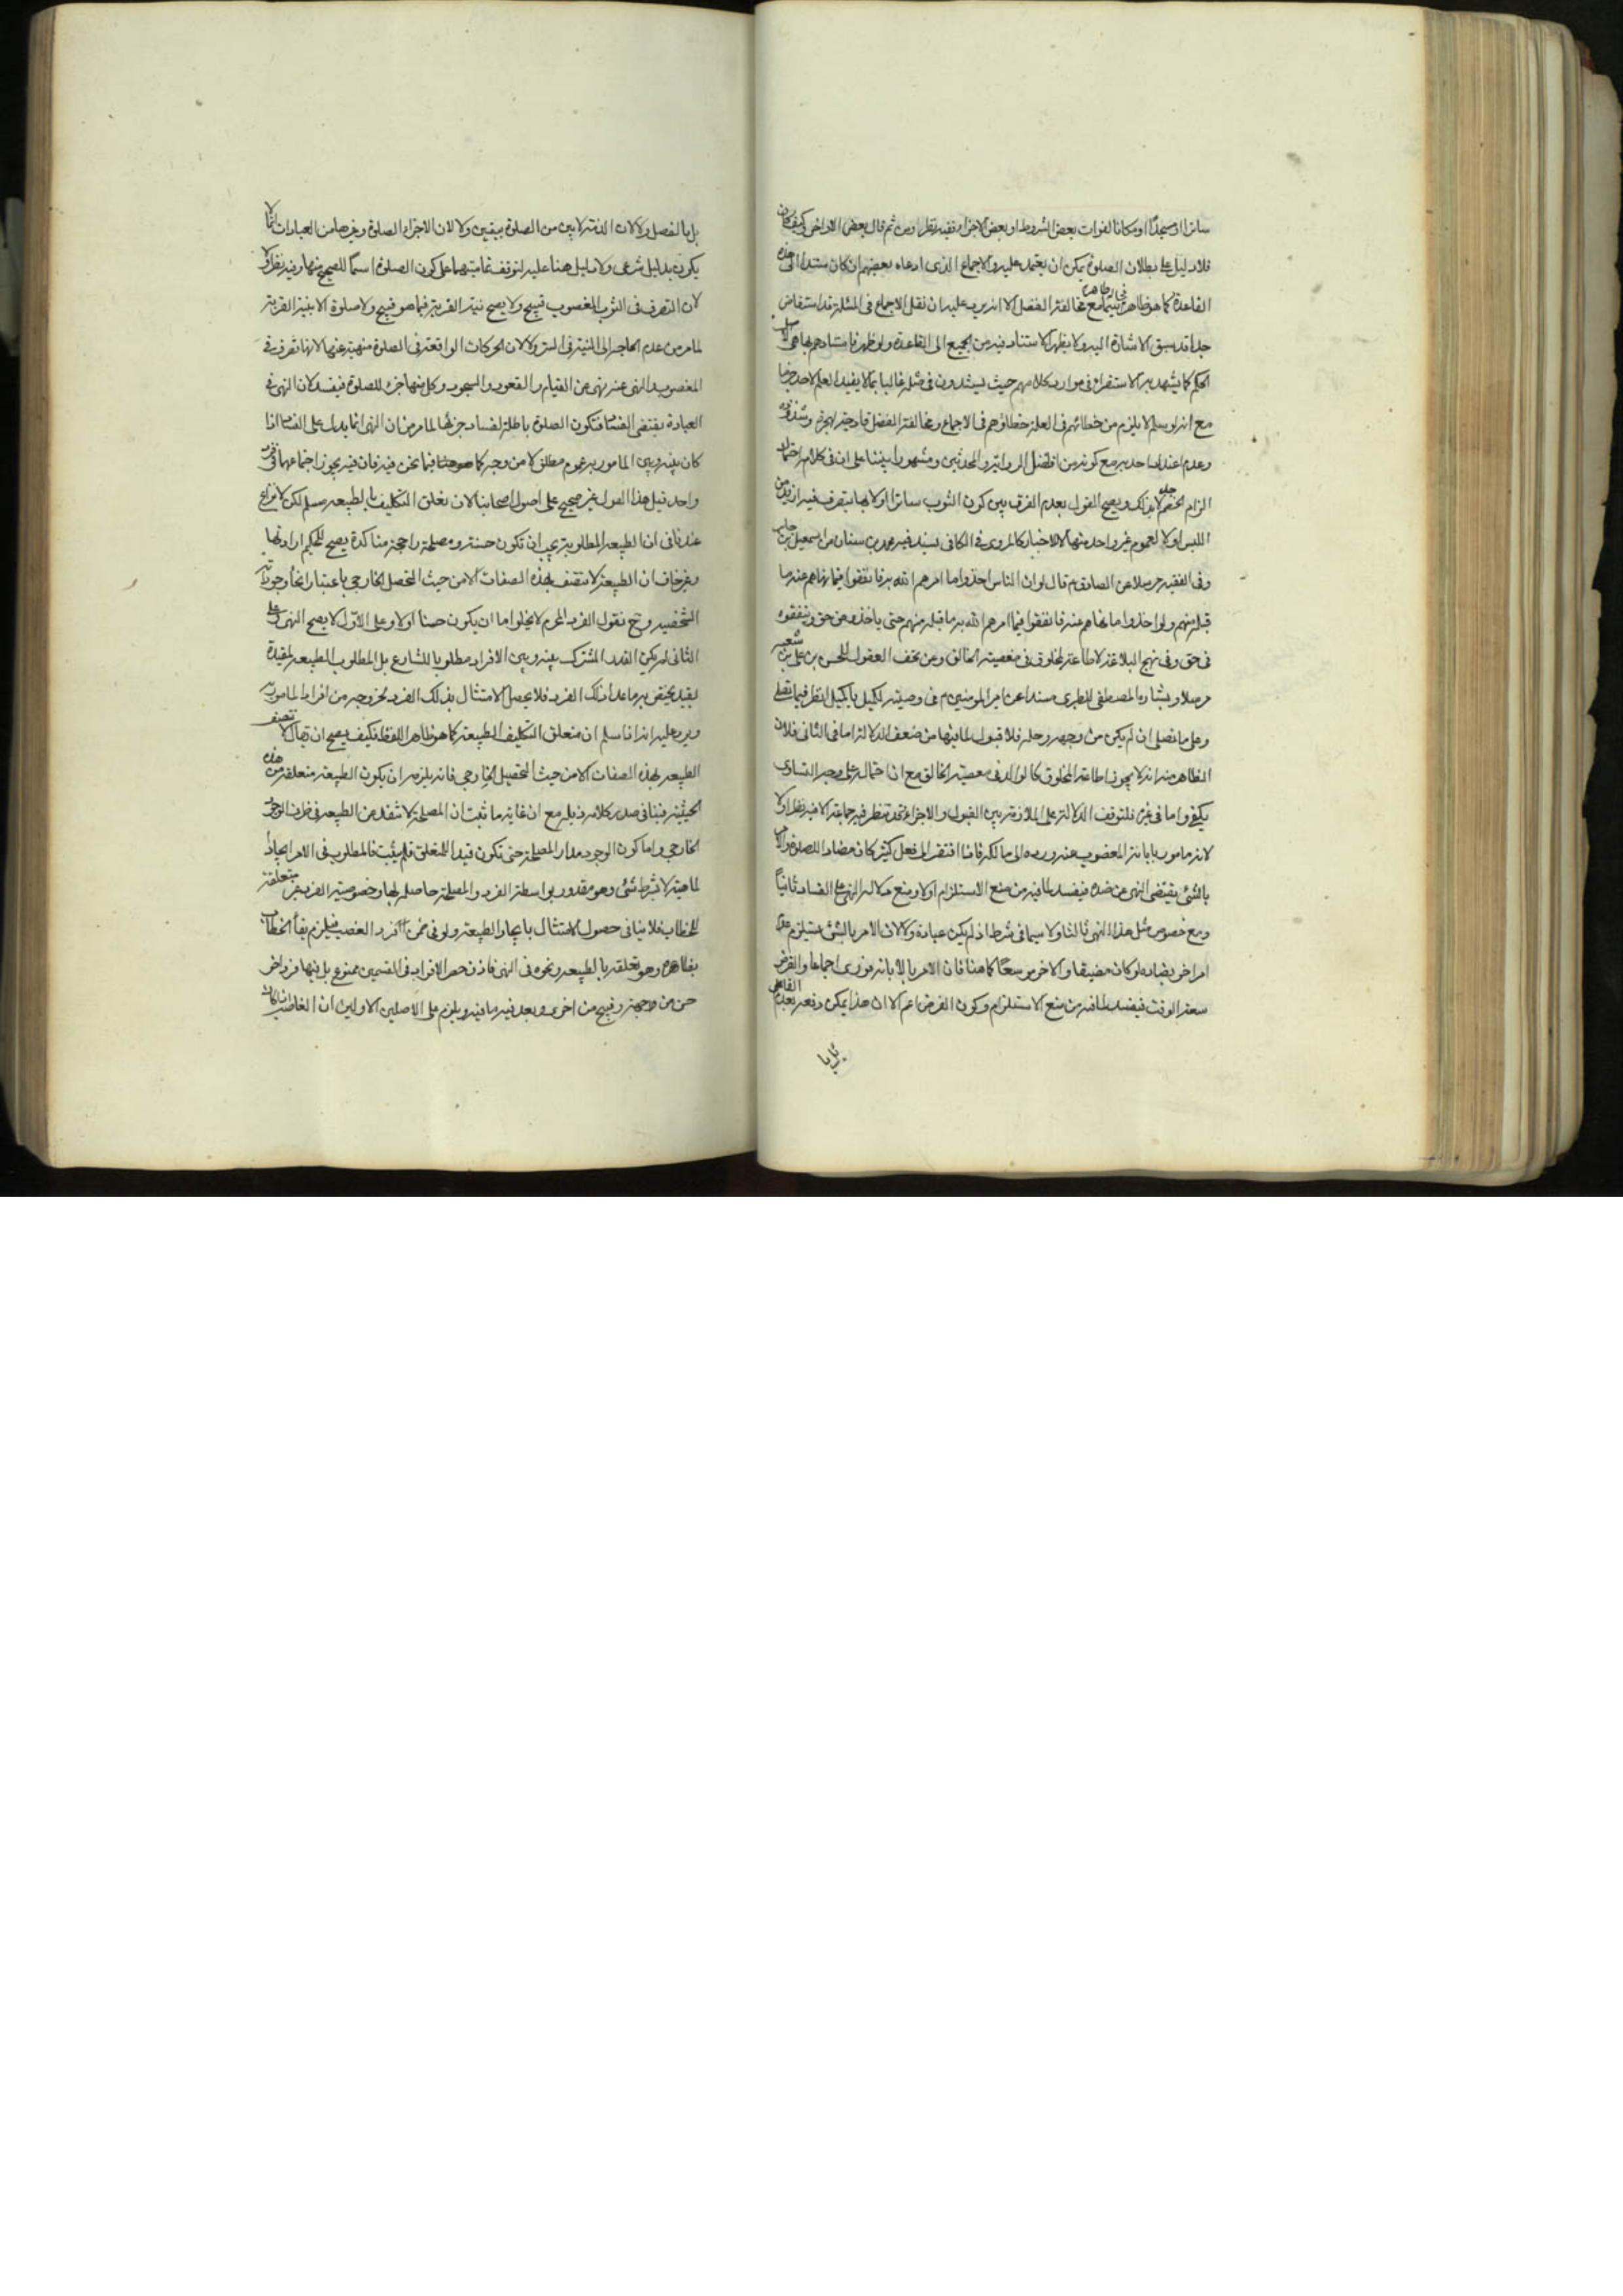 ساترا او مسجدا او مكانا لفوات بعض الشروط او بعض الاجزاء ففيه نظر ومن ثم قال بعض الاواخر كيف كان
فلا دليل على بطلان الصلوة يمكن ان يعتمد عليه والاجماع الذى ادعاه بعضهم ان كان مستندا الى هذه
القاعدة كما هو ظاهر فى مع مخالفة الفضل الا انه يرد عليه ان نقل الاجماع فى المسئلة قد استفاض
جدا قد سبق الاشارة اليه ولا يظهر الاستناد فيه من الجميع الى القاعدة ولو ظهر فاستنادهم بها هى
الحكم كما يشهد به الاستقراء فى موارد كلامهم حيث يستندون فى مثله غالبا بما لا يفيد العلم لاحد جزما
مع انه لو سلم لا يلزم من خطائهم فى العلة خطاؤهم فى الاجماع ومخالفة الفضل قادحة
وعدم اعتداد احد به مع كونه من افضل الرواة والمحدثين ومشهورا بيننا على ان فى كلامه احتمال
الزام الخصم لا بذلك ويصح القول بعدم الفرق بين كون الثوب ساترا اولا بها يتصرف فيه ازيد من
اللبس او لا لعموم غير واحد منها الاخبار كالمروى فى الكافى بسند فيه محمد بن سنان عن اسمعيل بن جابر
وفى الفقيه مرسلا عن الصادق م قال لو ان الناس اخذوا ما امرهم الله به فانفقوا فيما نهاهم عنه ما
قبله منهم ولو اخذوا ما نهاهم عنه فانفقوا فيما امرهم الله به ما قبله منهم حتى ياخذوه من حق وينفقوه
فى حق وفى نهج البلاغة لا طاعة لمخلوق فى معصية الخالق وعن تحف العقول للحسن بن على بن شعبه
مرسلا وبشارة المصطفى للطبرى مسندا عن امير المومنين م فى وصيته لكميل يا كميل انظر فيما تصلى
وعلى ما تصلى ان لم يكن من وجهه وحله فلا قبول لما فيها من ضعف الدلالة اما فى الثانى فلان
الظاهر منه انه لا يجوز اطاعة المخلوق كالوالد فى معصية الخالق مع ان احتماله على وجه التساوى
يكفى واما فى غيره فلتوقف الدلالة على الملازمة بين القبول والاجزاء وقد تنظر فيه جماعة الا فيه نظر ولا
لانه مامور بابانة المغصوب عنه ورده الى مالكه فاذا افتقر الى فعل كثير كان مضادا للصلوة والامر
بالشئ يقتضى النهى عن ضده فيفسد لما فيه من منع الاستلزام اولا ومنع دلالة النهى على الفساد ثانيا
ومع خصوص مثل هذا النهى ثالثا ولا سيما فى شرط اذ لم يكن عبادة ولا لان الامر بالشئ يستلزم عدم
امر اخر يضاده لو كان مضيقا والاخر موسعا كما هنا فان الامر بالابانة فورى اجماعا والفرض
سعة الوقت فيفسد لما فيه من منع الاستلزام وكون الفرض اعم الا ان هذا يمكن دفعه بعدم القائل
بل بالفصل ولا لان الذمة لا يبرء من الصلوة بيقين ولا لان الاجزاء الصلوة وغيرها من العبادات انما
يكون بدليل شرعى ولا دليل هنا عليه لتوقف تماميتهما على كون الصلوة اسما للصحيح منها وفيه نظر ولا
لان التصرف فى الثوب المغصوب قبيح ولا يصح نية القربة فيما هو قبيح ولا صلوة الا بنية القربة
لما مر من عدم الحاجة الى النية فى الستر ولا لان الحركات الواقعة فى الصلوة منهية عنها لانها تصرف فى
المغصوب والنهى عنه نهى عن القيام والقعود والسجود وكل منها جزء للصلوة فيفسد لان النهى فى
العبادة يقتضى الفساد فتكون الصلوة باطلة لفساد جزئها لما مر من ان النهى انما يدل على الفساد اذا
كان بينه وبين المامور به عموم مطلق لا من وجه كما فيما نحن فيه فان فيه يجوز اجتماعهما فى فرد
واحد قيل هذا القول غير صحيح على اصول اصحابنا لان تعلق التكليف بالطبيعه مسلم لكن لا نزاع
عندنا فى ان الطبيعه المطلوبة يجب ان تكون حسنة ومصلحة راجحة متاكدة يصح للحكيم ارادتها
وغير خاف ان الطبيعة لا تتصف بهذه الصفات الا من حيث التحصل الخارجى باعتبار انحاء وجوداته
الشخصيه وح نقول الفرد المحرم لا يخلو اما ان يكون حسنا اولا وعلى الاول لا يصح النهى وعلى
الثانى لم يكن القدر المشترك بينه وبين الافراد مطلوبا للشارع بل المطلوب الطبيعه المقيدة
بقيد يختص به ما عدا ذلك الفرد فلا يحصل الامتثال بذلك الفرد لخروجه من افراد المامور به
ويرد عليه انه اذا سلم ان متعلق التكليف الطبيعة كما هو ظاهر اللفظ فكيف يصح ان يقال لا تتصف
الطبيعه بهذه الصفات الا من حيث التحصيل الخارجى فانه يلزمه ان يكون الطبيعة متعلقة من هذه
الحيثية فينافى صدر كلامه ذيله مع ان غاية ما ثبت ان المصلحة لا تنفك عن الطبيعه فى ظرف الوجود
الخارجى واما كون الوجود مدار المصلحة حتى تكون قيدا للمتعلق فلم يثبت فالمطلوب فى الامر ايجاد
لماهية لا بشرط شئ وهو مقدور بواسطة الفرد والمصلحة حاصله لها وخصوصية الفرد غير متعلقة
للخطاب فلا ينافى حصول الامتثال بايجاد الطبيعة ولو فى ضمن الفرد الغصب فيلزم بقاء الخطاب
بظاهره وهو تعلقه بالطبيعه ونحوه فى النهى فاذن حصر الافراد فى القسمين ممنوع بل بينها فرد اخر
حسن من جهة وقبيح من اخرى وبعد فيه ما فيه ويلزم على الاصلين الاولين ان الغاصب ان كان